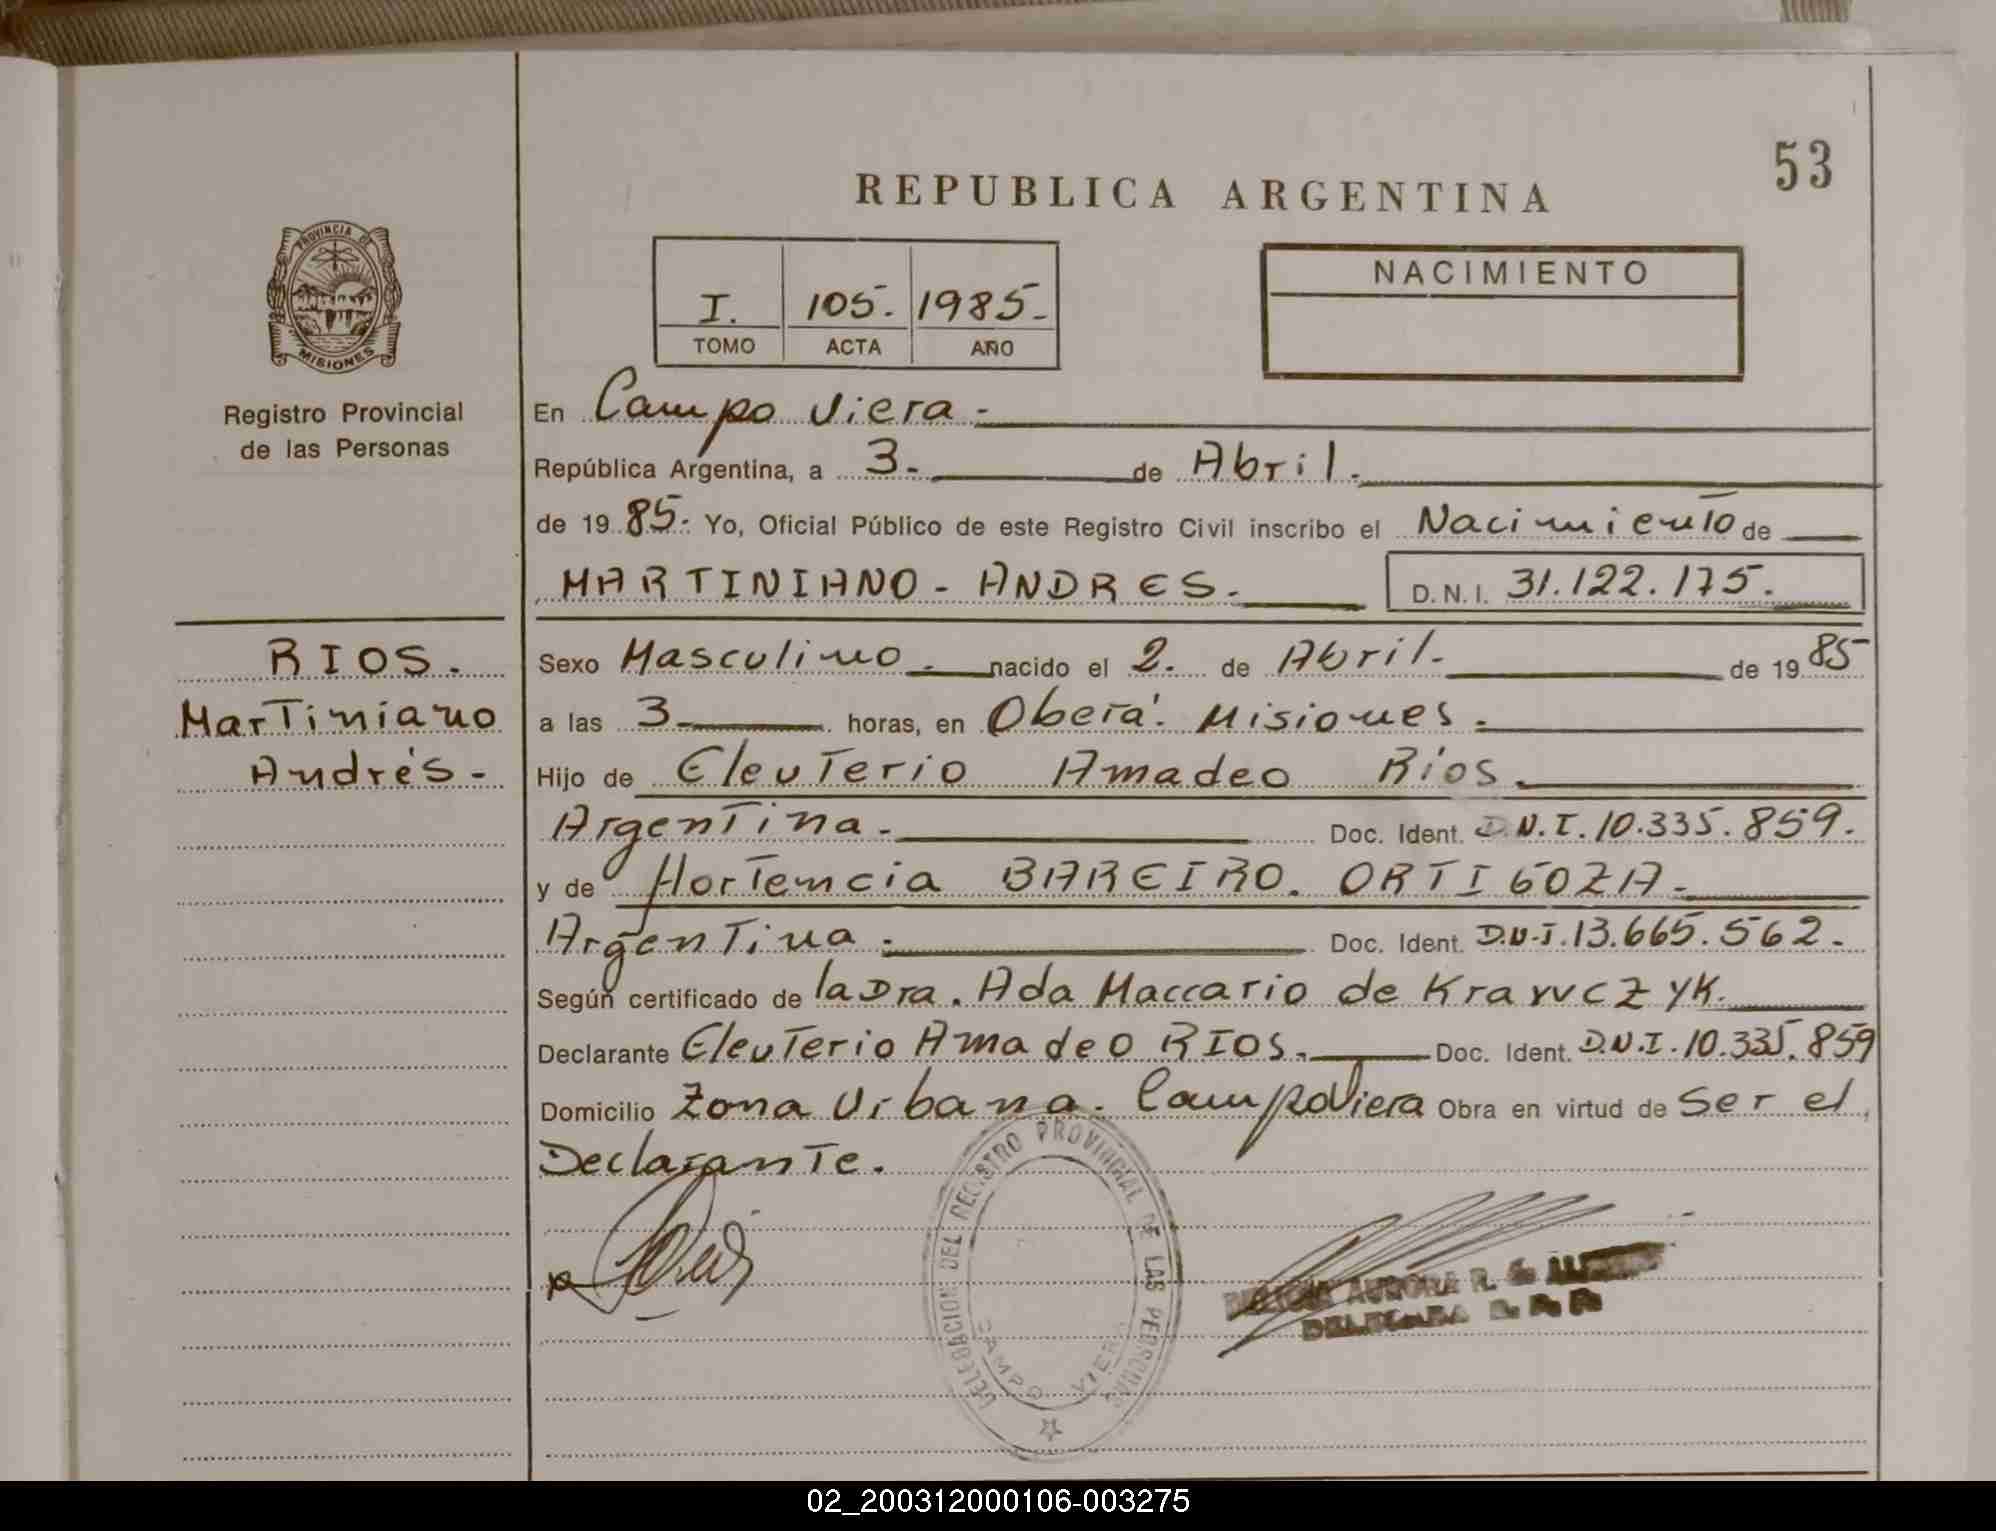 53
REPUBLICA ARGENTINA
PROVINCIA DE
MISIONES
Registro Provincial
de las Personas
I. 105. 1985.
TOMO ACTA AÑO
NACIMIENTO
En Campo Viera.
República Argentina, a 3. de Abril.
de 1985. Yo, Oficial Público de este Registro Civil inscribo el Nacimiento de
MARTINIANO - ANDRES. D.N.I. 31.122.175.
RIOS.
Martiniano
Andrés-
Sexo Masculino. nacido el 2. de Abril. de 1985
a las 3. horas, en Oberá. Misiones.
Hijo de Eleuterio Amadeo Ríos.
Argentina. Doc. Ident. D.N.I. 10.335.859.
y de Hortencia BAREIRO. ORTIGOZA.
Argentina. Doc. Ident. D.N.I. 13.665.562.
Según certificado de la Dra. Ada Maccario de Krawczyk.
Declarante Eleuterio Amadeo RIOS. Doc. Ident. D.N.I. 10.335.859
Domicilio Zona Urbana. Campo Viera Obra en virtud de Ser el
Declarante.
DELEGACION DEL REGISTRO PROVINCIAL DE LAS PERSONAS
CAMPO VIERA
AURORA R. G.
DELEGADA R. P. P.
02_200312000106-003275